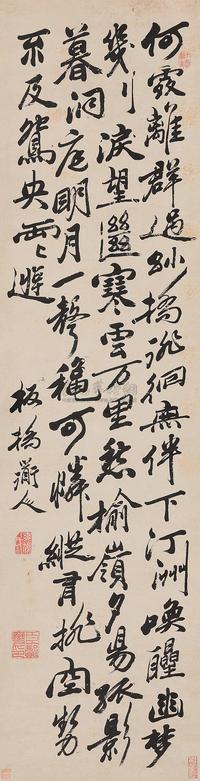 何處離群過徘徊無伴下汀洲喚醒幽夢
幾行淚望斷寒雲万里愁榆嶺夕陽孤影
暮洞庭明月一聲穐可憐縱有排空勢
不及鴛央兩兩遊
板橋道人